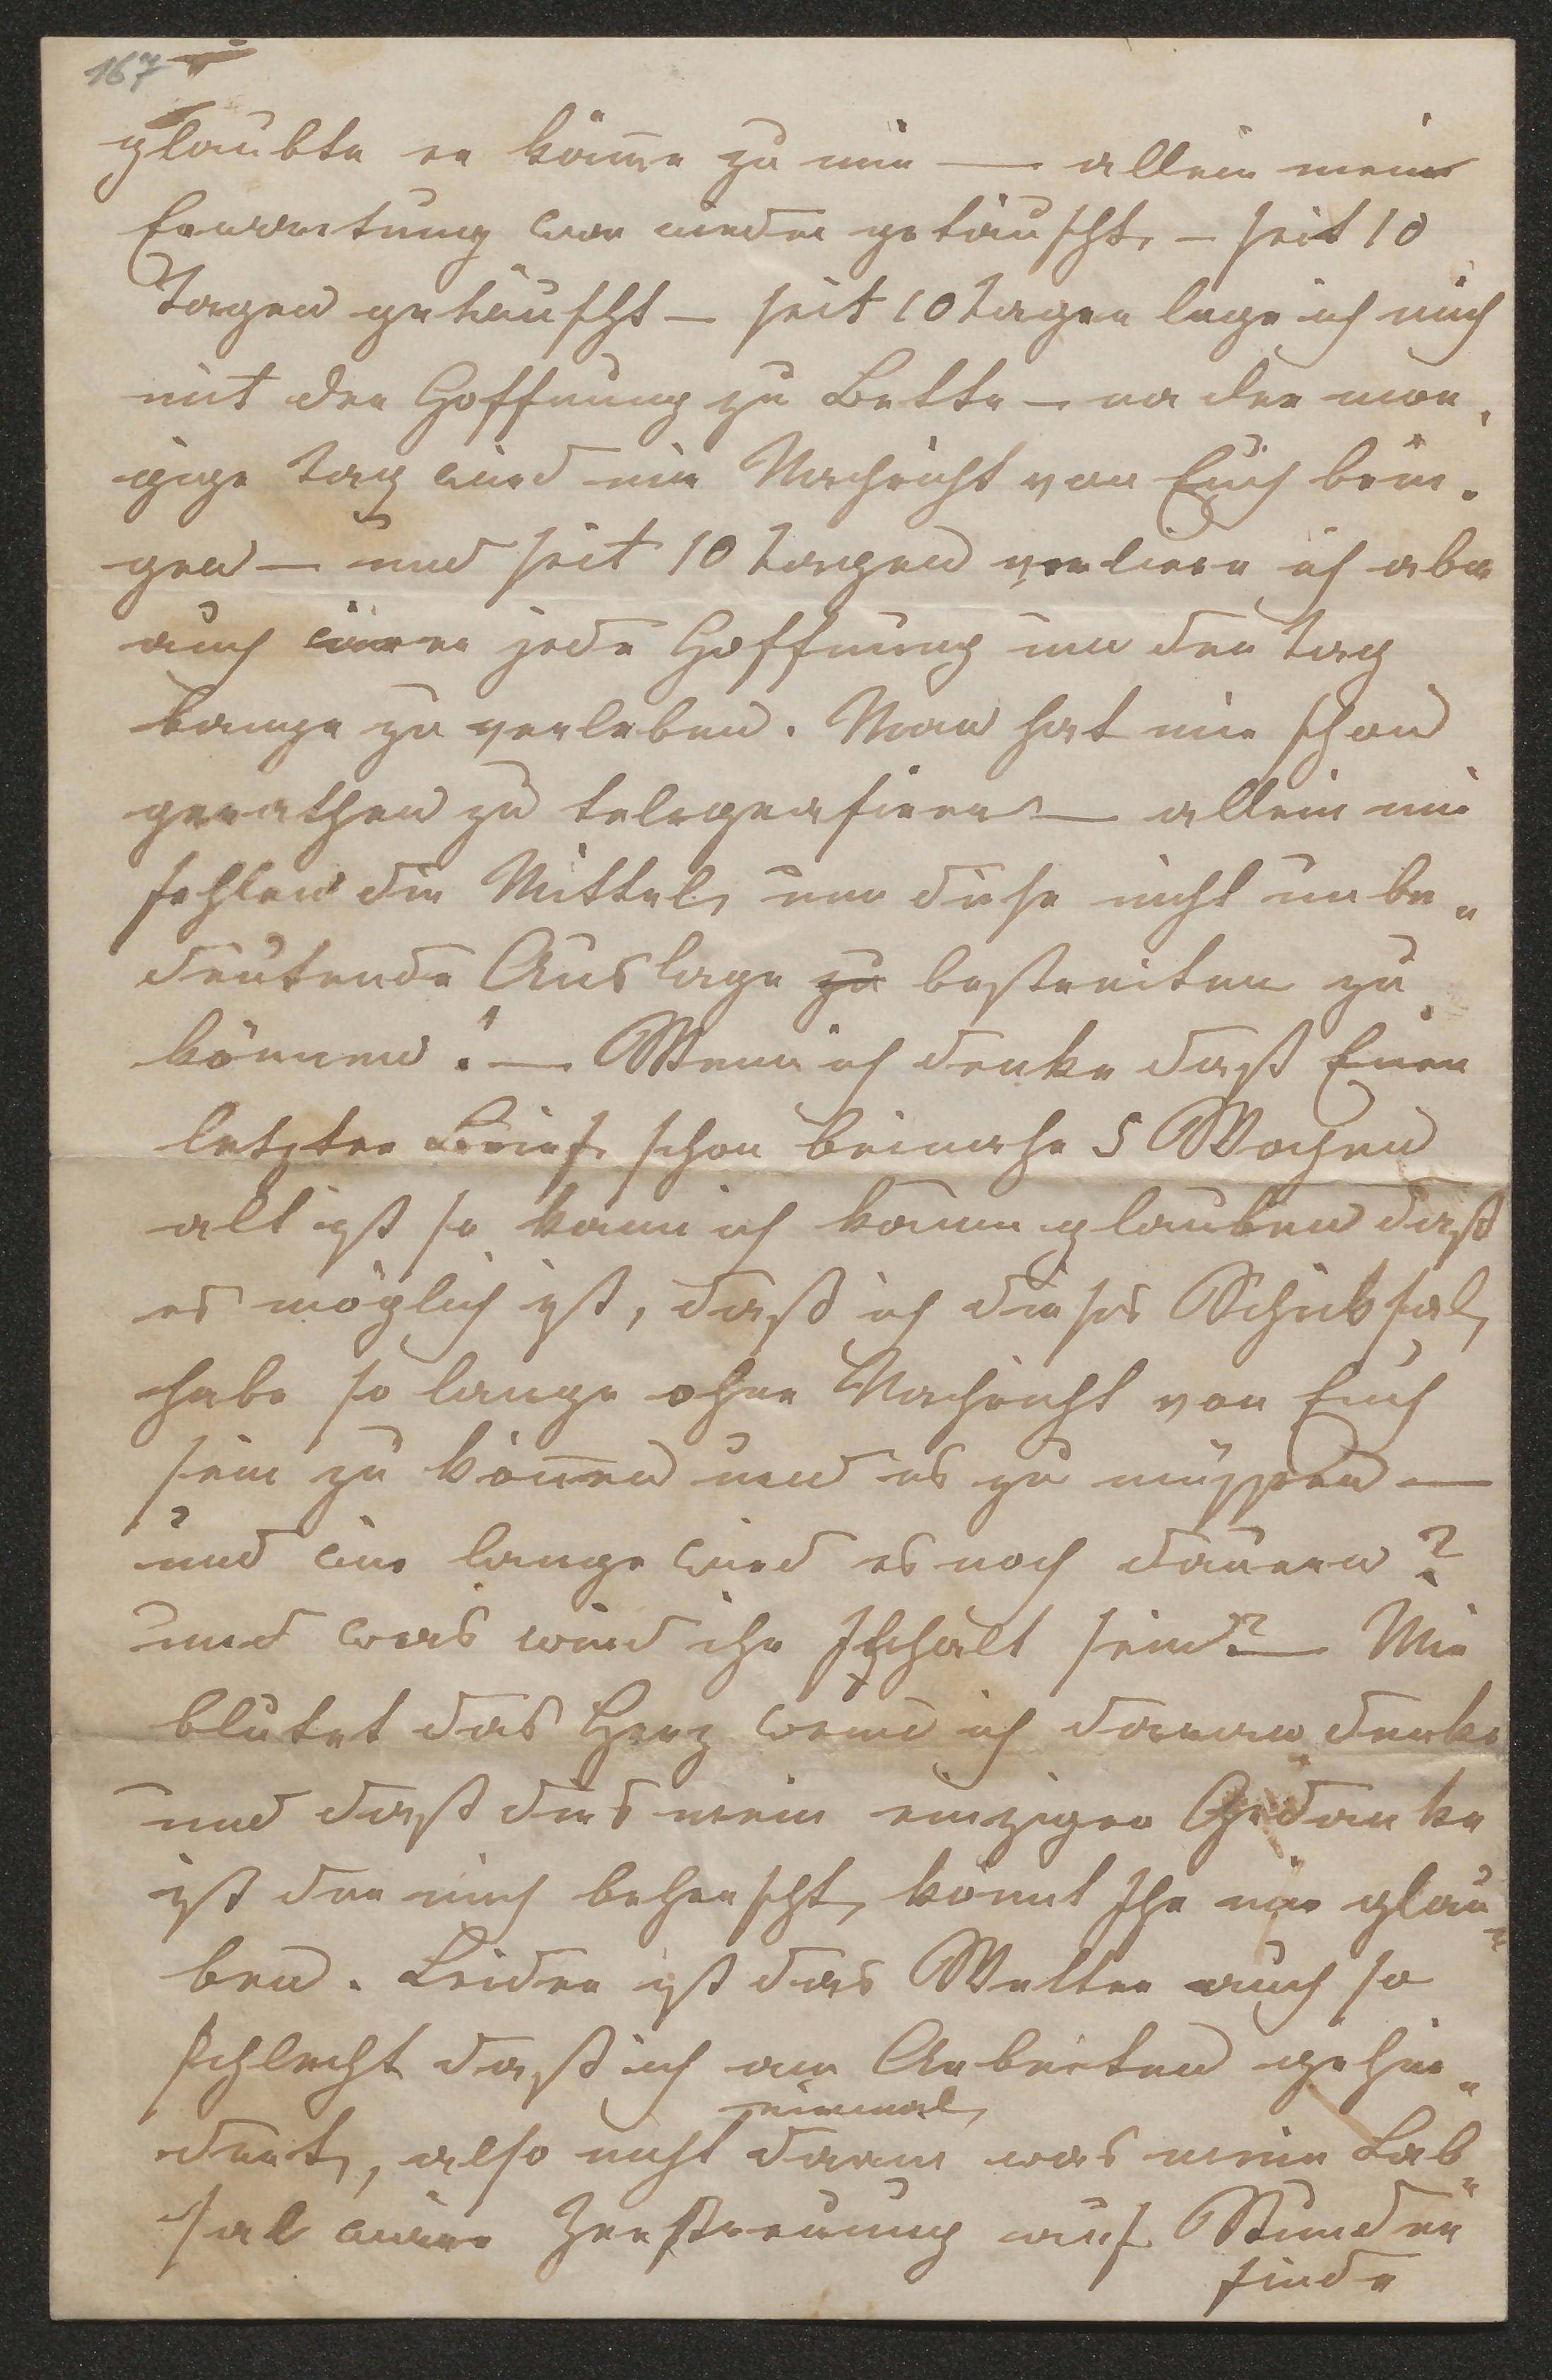 167
glaubte er käme zu mir — allein meine
Erwartung war wieder getäuscht, — seit 10
Tagen getäuscht — seit 10 Tagen lege ich mich
mit der Hoffnung zu Bette — na der mor-
gige Tag wird mir Nachricht von Euch brin-
gen — und seit 10 Tagen verliere ich aber
auch immer jede Hoffnung um den Tag
bange zu verleben. Man hat mir schon
gerathen zu telegrafieren — allein mir
fehlen die Mittel, um diese nicht unbe-
deutende Auslage zu bestreiten zu
können! — Wenn ich denke daß Euer
letzter Brief schon beinahe 5 Wochen
alt ist so kann ich kaum glauben daß
es möglich ist, daß ich dieses Schicksal
habe so lange ohne Nachricht von Euch
sein zu können und es zu müssen —
und wie lange wird es noch dauern?
und was wird ihr Inhalt sein? — Mir
blutet das Herz wenn ich daran denke
und daß dies mein einziger Gedanke
ist der mich beherscht, könnt Ihr mir glau-
ben. Leider ist das Wetter auch so
schlecht daß ich am Arbeiten gehin-
einmal
dert, also nicht darin was meine Lab-
sal wäre Zerstreuung auf Stunden
finde